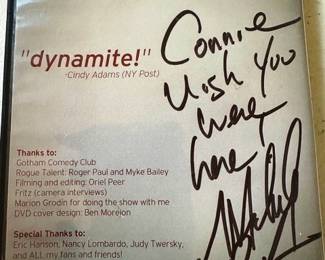 "dynamite!"
-Cindy Adams (NY Post)
Connie
Wish You
were
here
Thanks to:
Gotham Comedy Club
Rogue Talent: Roger Paul and Myke Bailey
Filming and editing: Oriel Peer
Fritz (camera interviews)
Marion Grodin for doing the show with me
DVD cover design: Ben Morejon
Special Thanks to:
Eric Hanson, Nancy Lombardo, Judy Twersky,
and ALL my fans and friends!